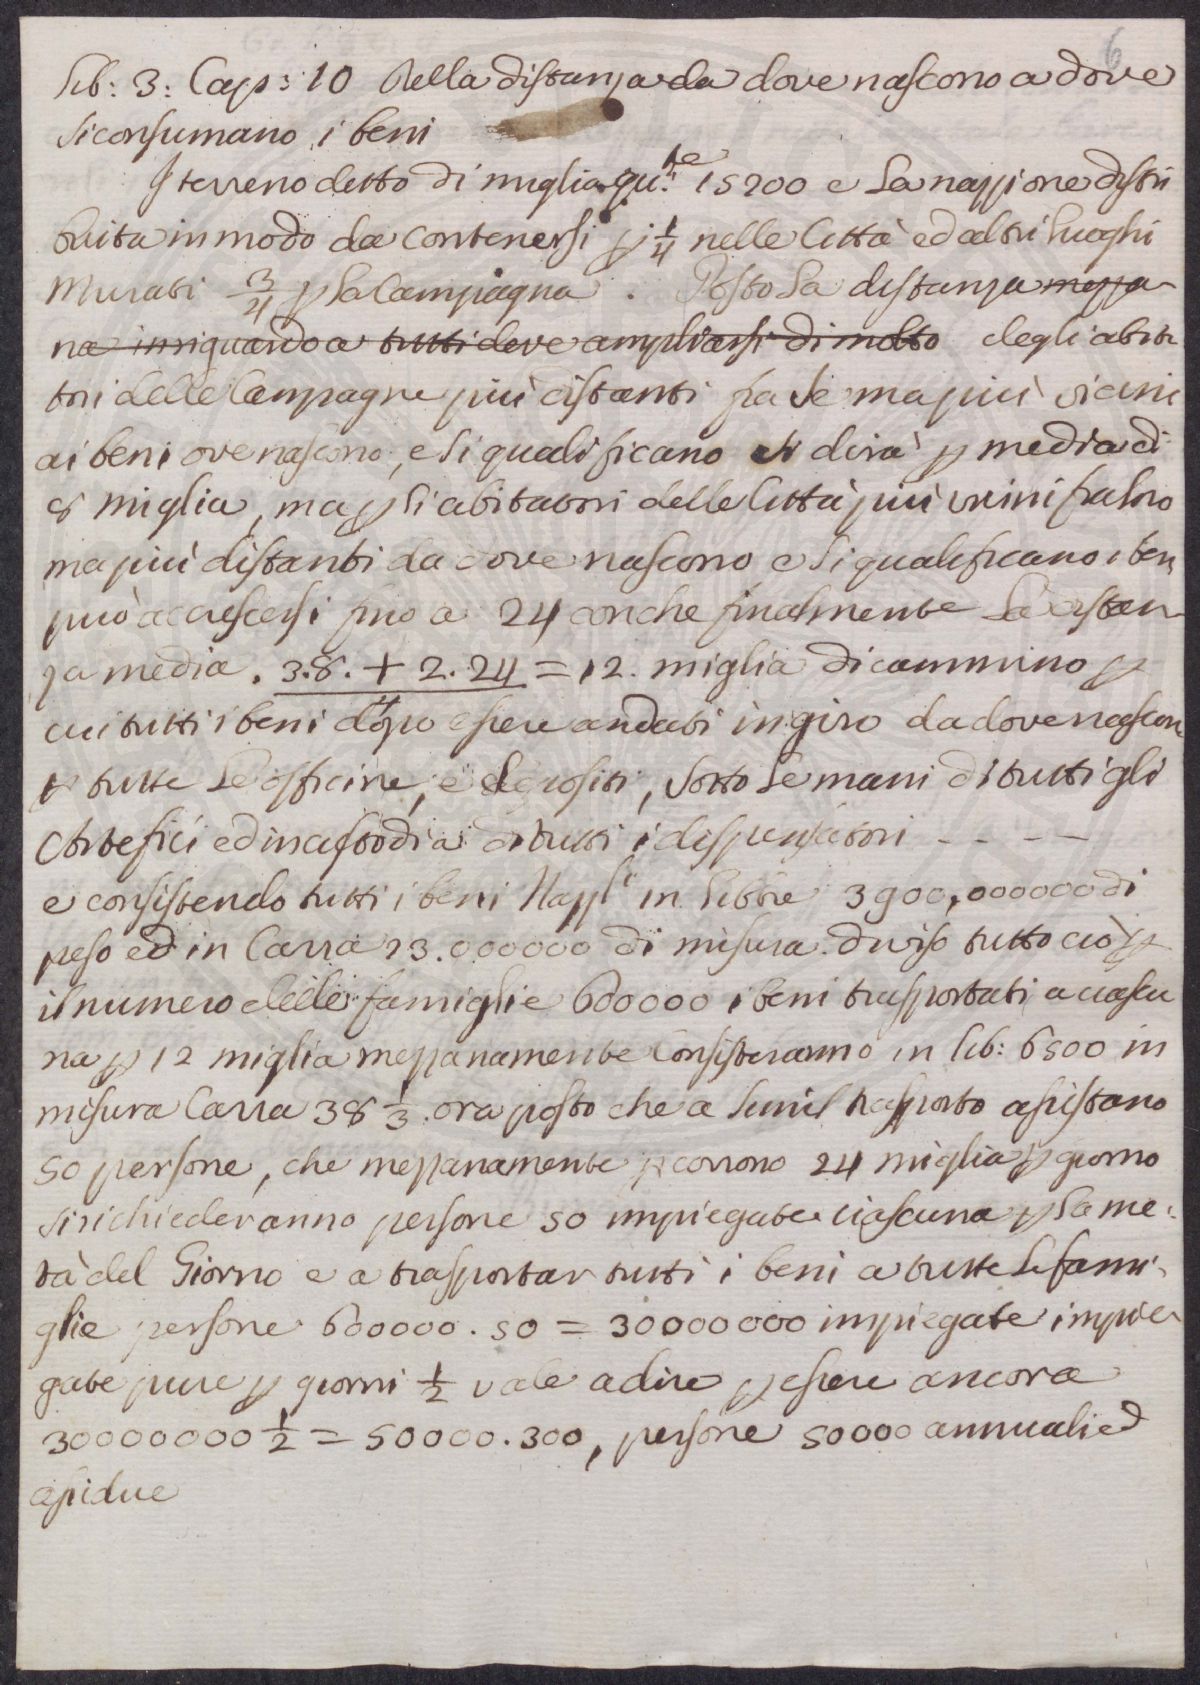 6
Lib: 3: Cap: 10 Della distanza da dove nascono a dove
si consumano i beni
Il terreno detto di miglia qu.te 15200 e la nazzione distri
buita in modo da contenersi p 1/4 nelle Città ed altri luoghi
Murati 3/4 p la Campagna. Posto la distanza mezza
na in riguardo a tutti deve ampliarsi di molto degli abita
tori delle Campagne più distanti fra se ma più vicini
ai beni ove nascono, e si qualificano si dirà p media di
8 miglia, ma p li abitatori delle Città più vicini fra loro
ma più distanti da dove nascono e si qualificano i beni
può accrescersi fino a 24 con che finalmente la distan
za media. 3.8. + 2.24 = 12. miglia di cammino p
4
cui tutti i beni dopo essere andati in giro da dove nascon
p tutte le officine, e depositi, sotto le mani di tutti gli
Artefici ed in custodia di tutti i dispensatori - - - -
e consistendo tutti i beni Nazzli in libbre 3900,000000 di
peso ed in Carra 23.000000 di misura. diviso tutto ciò p
il numero delle famiglie 600000 i beni trasportati a ciascu
na p 12 miglia mezzanamente consisteranno in lib: 6500 in
misura Carra 38 1/3. ora posto che a simil trasporto assistano
50 persone, che mezzanamente pcorrono 24 miglia p giorno
si richiederanno persone 50 impiegate ciascuna p la me-
tà del Giorno e a trasportar tutti i beni a tutte le fami-
glie persone 600000.50 = 30000000 impiegate impie
gate pure p giorni 1/2 vale a dire p essere ancora
30000000 1/2 = 50000.300, persone 50000 annuali ed
assidue